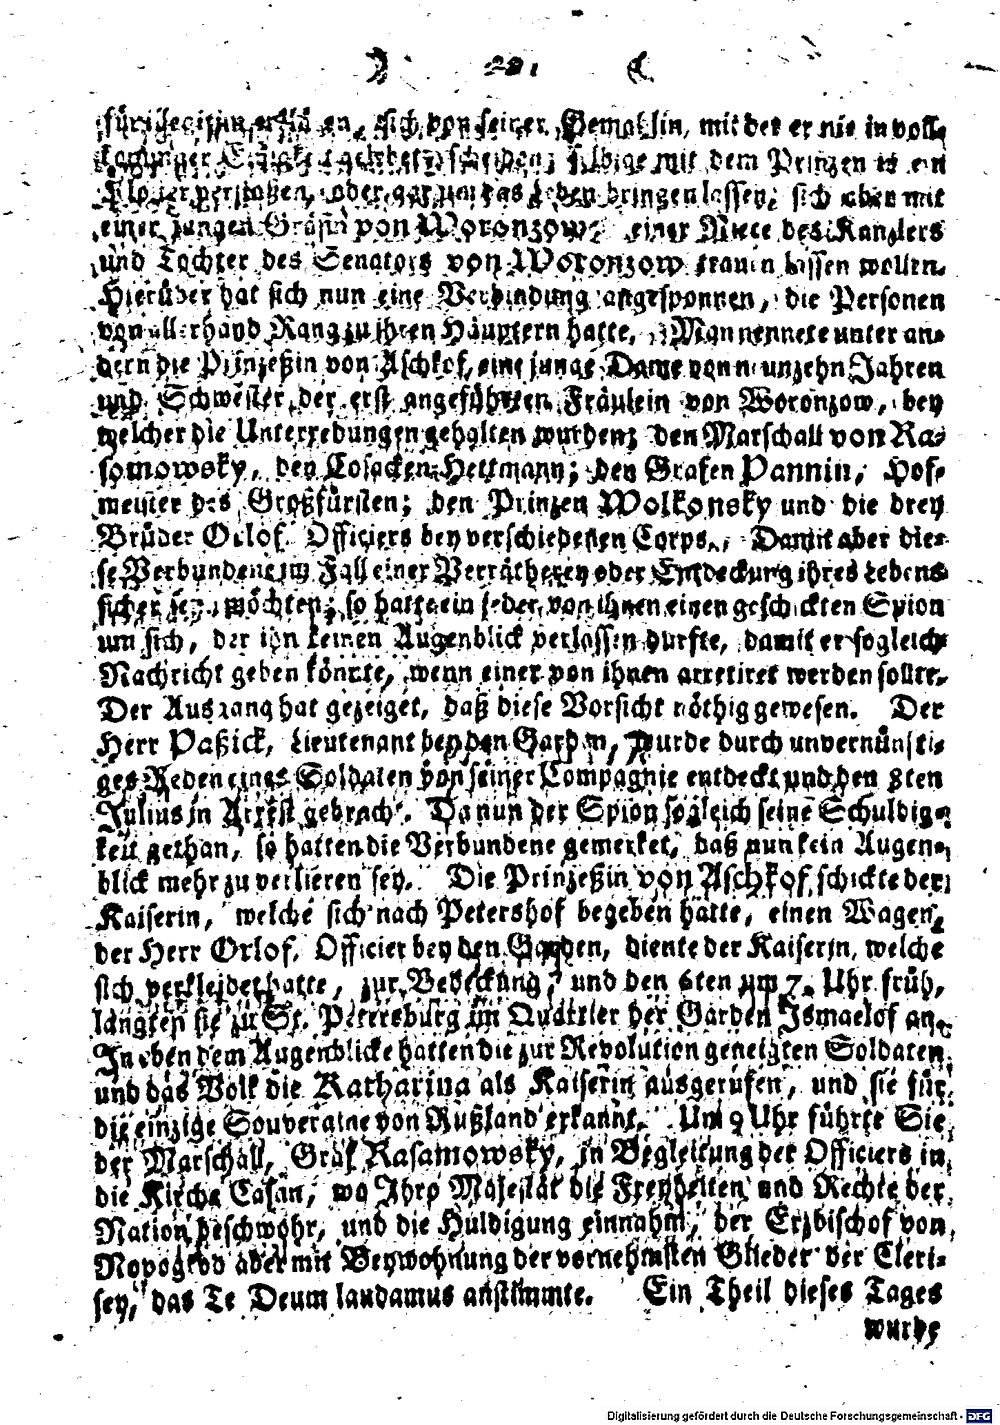 ) 221 (
für illegitim erklären, sich von seiner Gemahlin, mit der er nie in voll-
kommener gelebet, scheiden; selbige mit dem Prinzen in ein
Kloster verstoßen, oder gar um das Leben bringen lassen; sich aber mit
einer jungen Gräfin von Woronzow, einer Niece des Kanzlers
und Tochter des Senators von Woronzow trauen lassen wollen.
Hierüber hat sich nun eine Verbindung angesponnen, die Personen
von allerhand Rang zu ihren Häuptern hatte. Man nennete unter an-
dern die Prinzeßin von Aschkof, eine junge Dame von neunzehn Jahren
und Schwester der erst angeführten Fräulein von Woronzow, bey
welcher die Unterredungen gehalten wurden; den Marschall von Ra-
somowsky, den Cosacken-Hettmann; den Grafen Pannin, Hof-
meister des Großfürsten; den Prinzen Wolkonsky und die drey
Brüder Orlof, Officiers bey verschiedenen Corps. Damit aber die-
se Verbundene im Fall einer Verrätherey oder Entdeckung ihres Lebens
sicher seyn möchten; so hatte ein jeder von ihnen einen geschickten Spion
um sich, der ihn keinen Augenblick verlassen durfte, damit er sogleich
Nachricht geben könnte, wenn einer von ihnen arretiret werden sollte.
Der Ausgang hat gezeiget, daß diese Vorsicht nöthig gewesen. Der
Herr Paßick, Lieutenant bey den Garden, wurde durch unvernünfti-
ges Reden eines Soldaten von seiner Compagnie entdeckt und den 8ten
Julius in Arrest gebracht. Da nun der Spion sogleich seine Schuldig-
keit gethan, so hatten die Verbundene gemerket, daß nun kein Augen-
blick mehr zu verlieren sey. Die Prinzeßin von Aschkof schickte der
Kaiserin, welche sich nach Petershof begeben hatte, einen Wagen,
der Herr Orlof, Officier bey den Garden, diente der Kaiserin, welche
sich verkleidet hatte, zur Bedeckung, und den 6ten um 7. Uhr früh,
langten sie zu St. Petersburg im Quartier der Garden Ismaelof an.
In eben dem Augenblicke hatten die zur Revolution geneigten Soldaten
und das Volk die Katharina als Kaiserin ausgerufen, und sie für
die einzige Souveraine von Rußland erkannt. Um 9 Uhr führte Sie
der Marschall, Graf Rasamowsky, in Begleitung der Officiers in
die Kirche Casan, wo Ihro Majestät die Freyheiten und Rechte der
Nation beschwohr, und die Huldigung einnahm, der Erzbischof von
Novogrod aber mit Beywohnung der vornehmsten Glieder der Cleri-
sey, das Te Deum laudamus anstimmte. Ein Theil dieses Tages
wurde
Digitalisierung gefördert durch die Deutsche Forschungsgemeinschaft - DFG